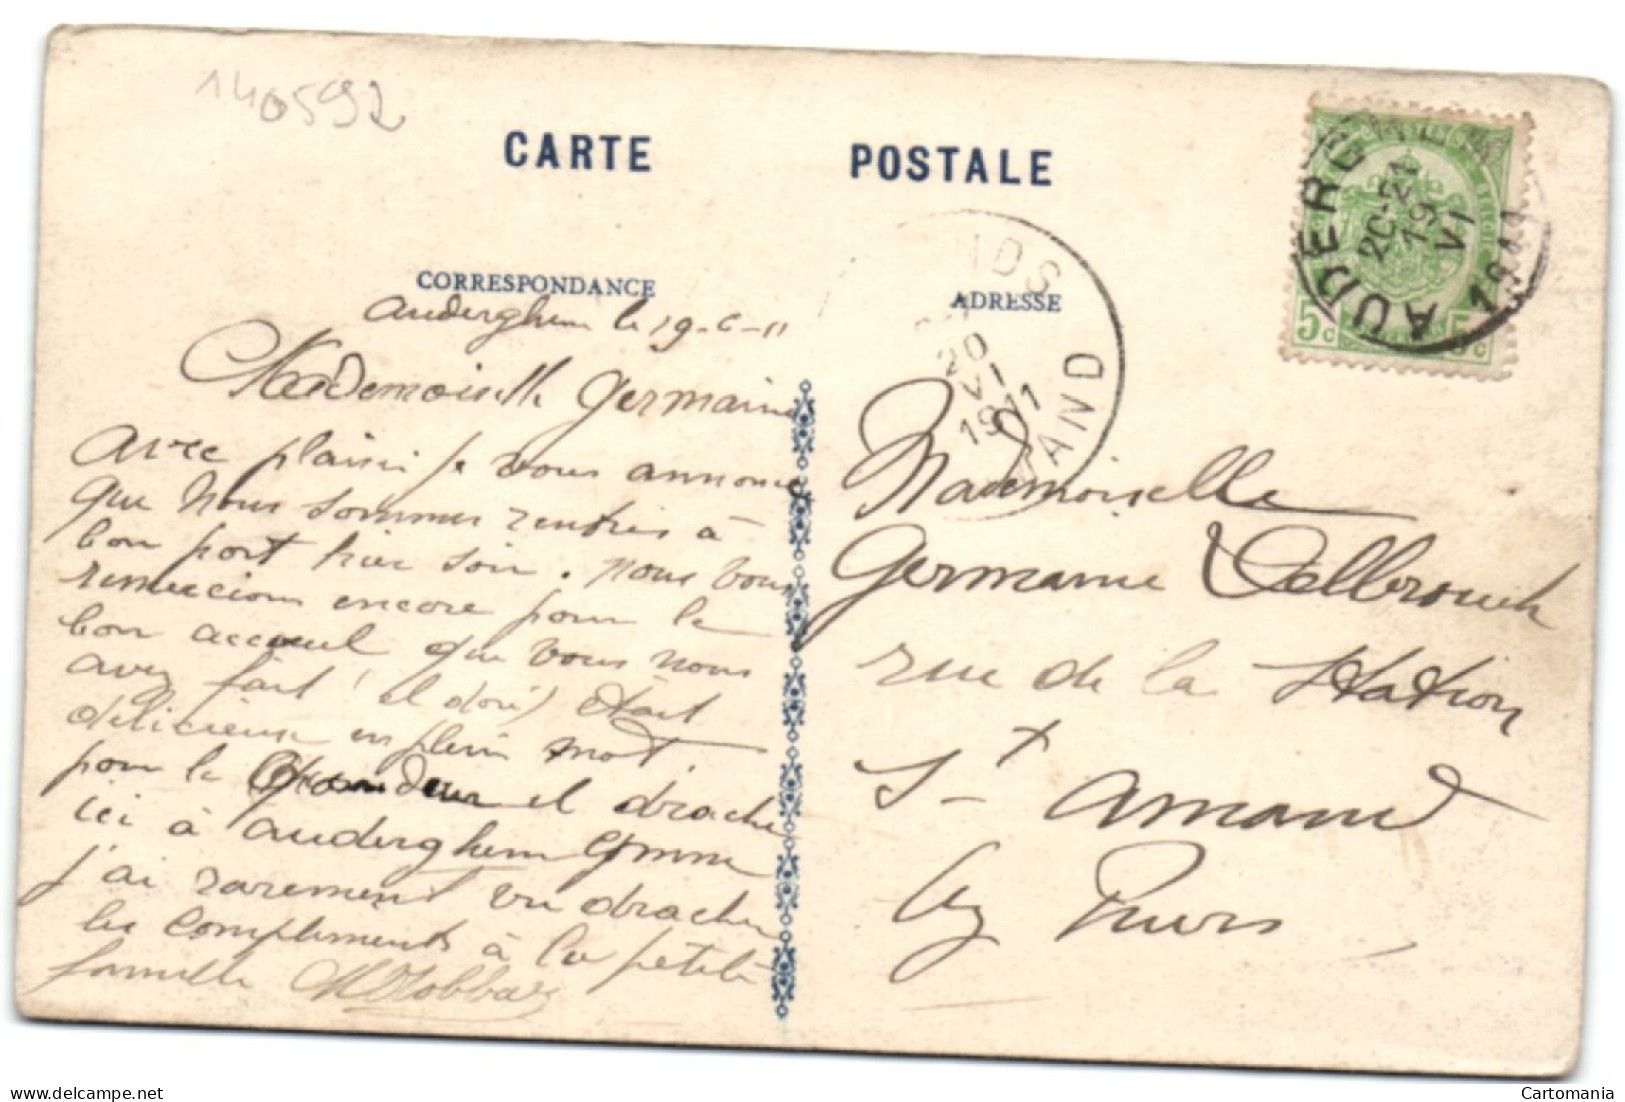 140592
CARTE POSTALE
CORRESPONDANCE
ADRESSE
AUDERGHEM
20-21
19
VI
1911
5c 5c
NDS
20
VI
1911
AND
Auderghem le 19-6-11
Mademoiselle Germaine
Avec plaisir je vous annonce
que nous sommes rentrés à
bon port hier soir. nous vous
remercions encore pour le
bon accueil que vous nous
avez fait (el doré) était
délicieuse en plein mot.
pour le il drache
ici à auderghem comme
j'ai rarement vu dracher
les compliments à la petite
famille
Mademoiselle
Germaine Delbrouck
rue de la Station
St Amand
lez Puers
Cartomania